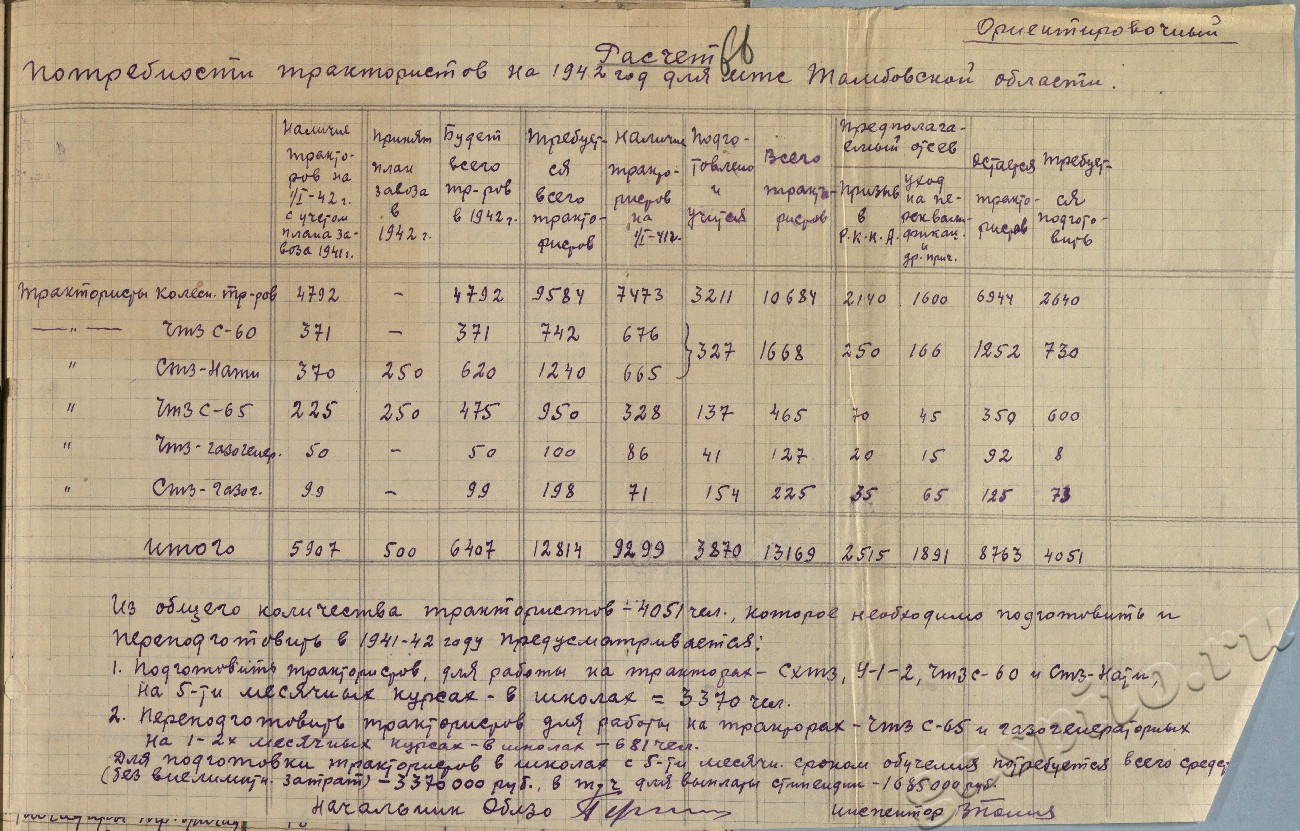 Ориентировочный
Расчет
потребности трактористов на 1942 год для мтс Тамбовской области.
Наличие тракто-ров на 1/I-42 г. с учетом плана за-воза 1941г.
Принят план завоза в 1942 г.
Будет всего тр-ров в 1942 г.
Требует-ся всего тракто-ристов
Наличие тракто-ристов на 1/I-41г.
Подго-товлено и учится
Всего тракто-ристов
Предполага-емый отсев
Призыв в Р.К.К.А.
уход на пе-реквали-фикац. и др. прич.
Остается тракто-ристов
Требует-ся подгото-вить
Трактористы колесн. тр-ров 4792 - 4792 9584 7473 3211 10684 2140 1600 6944 2640
—"— ЧТЗ С-60 371 - 371 742 676
327 1668 250 166 1252 730
" СТЗ-Нати 370 250 620 1240 665
" ЧТЗ С-65 225 250 475 950 328 137 465 70 45 350 600
" ЧТЗ-газогенер. 50 - 50 100 86 41 127 20 15 92 8
" СТЗ-газог. 99 - 99 198 71 154 225 35 65 125 73
Итого 5907 500 6407 12814 9299 3870 13169 2515 1891 8763 4051
Из общего количества трактористов - 4051 чел., которое необходимо подготовить и
переподготовить в 1941-42 году предусматривается:
1. Подготовить трактористов, для работы на тракторах - СХТЗ, У-1-2, ЧТЗ С-60 и СТЗ-Нати,
на 5-ти месячных курсах - в школах = 3370 чел.
2. Переподготовить трактористов для работы на тракторах - ЧТЗ С-65 и газогенераторных
на 1-2х месячных курсах - в школах - 681 чел.
Для подготовки трактористов в школах с 5-ти месячн. сроком обучения потребуется всего средств
(без внелимитн. затрат) - 3370000 руб., в т/ч для выплаты стипендии - 1685000 руб.
Начальник Облзо инспектор